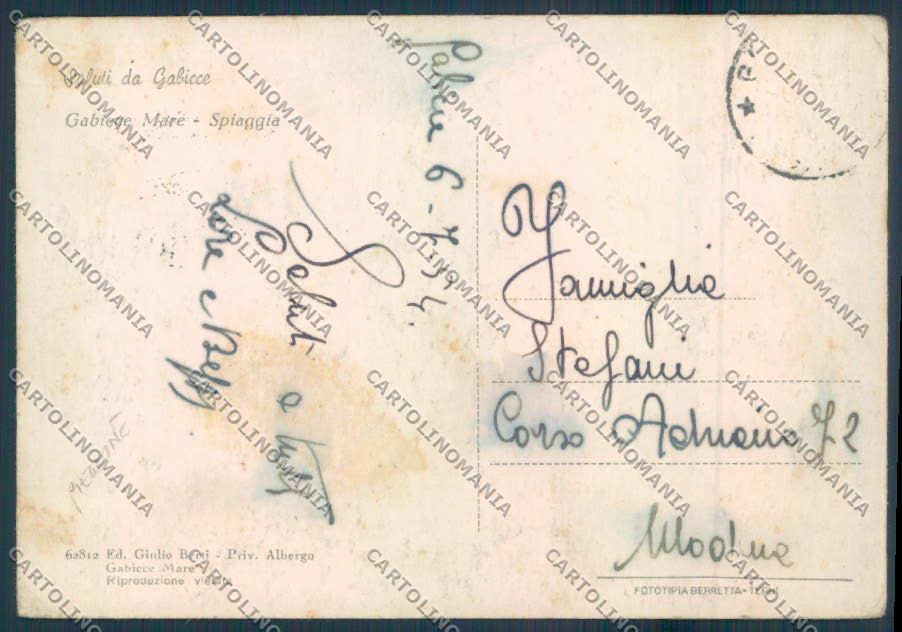 Saluti da Gabicce
Gabicce Mare - Spiaggia
6-7-94.
Saluti
a tutti
e
Famiglia
Stefani
Corso Adriano 72
Modena
62812 Ed. Giulio - Priv. Albergo
Gabicce Mare
Riproduzione vietata
FOTOTIPIA BERRETTA - TERNI
CARTOLINOMANIA